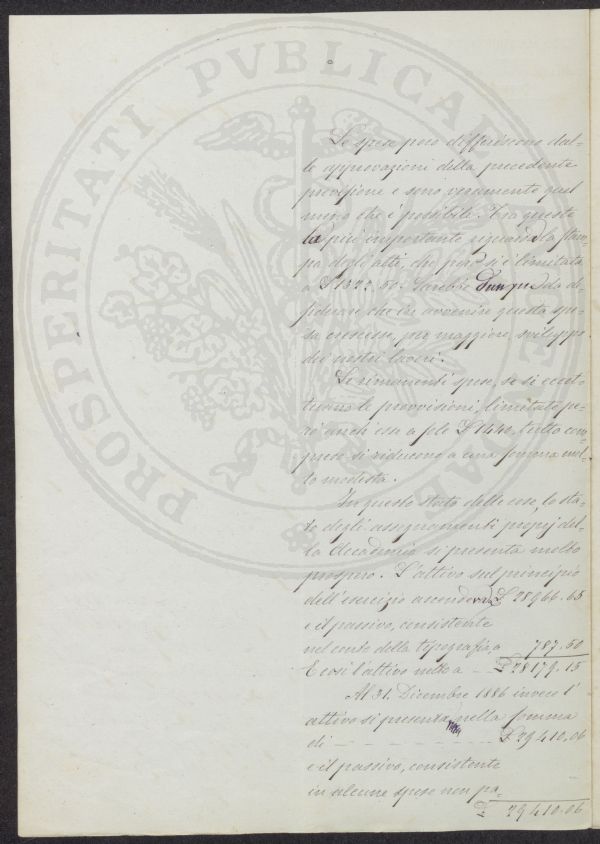 PROSPERITATI PVBLICAE
Le spese poro differiscono dal=
le approvazioni della precedente
previsione e sono veramente quel
meno che è possibile. Tra queste
la più importante riguarda la stam=
pa degli atti, che però si è limitata
a £ 1322.57. Sarebbe dunque da de
siderare che in avvenire questa spe=
sa crescesse, per maggiore sviluppo
dei nostri lavori.
Le rimanenti spese, se si eccet=
tuano le provvisioni, limitate pe=
rò anch'esse a sole £ 1440, tutto com
preso si riducono a una somma mol=
to modesta.
In questo stato delle cose, lo sta=
to degli assegnamenti proprj del=
la Accademia si presenta molto
prospero. L'attivo sul principio
dell'esercizio ascendeva £ 28966.65
e il passivo, consistente
nel conto della tipografia, a 787.50
E così l'attivo netto a — £ 28179.15
Al 31. Dicembre 1886 invece l'
attivo si presenta nella somma
di — £ 29410.06
e il passivo, consistente
in alcune spese non pa=
£ 29410.06